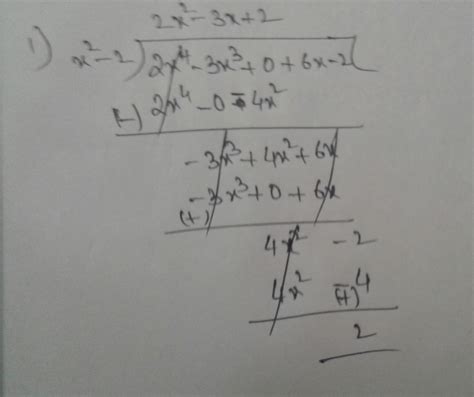 2x² - 3x + 2
1) x² - 2) 2x⁴ - 3x³ + 0 + 6x - 2(
(-) 2x⁴ - 0 - 4x²
- 3x³ + 4x² + 6x
- 3x³ + 0 + 6x
(+)
4x² - 2
4x² (+) - 4
2